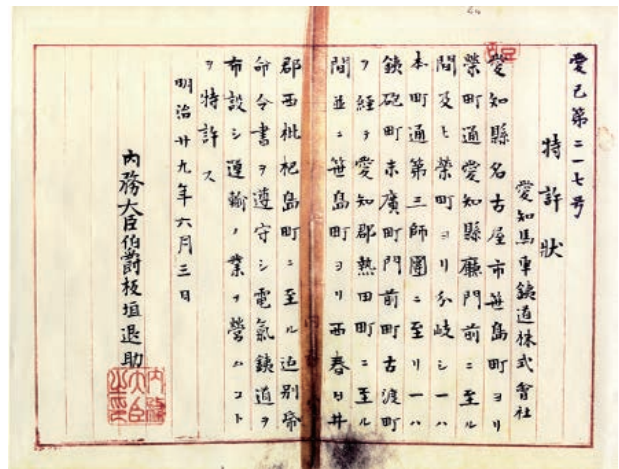 愛己第二一七号
特許狀
愛知馬車鐵道株式會社
愛知縣名古屋市笹島町ヨリ
榮町通愛知縣廳門前ニ至ル
間及ヒ榮町ヨリ分岐シ一ハ
本町通第三師團ニ至リ一ハ
鐵砲町末廣町門前町古渡町
ヲ經テ愛知郡熱田町ニ至ル
間並ニ笹島町ヨリ西春日井
郡西枇杷島町ニ至ル迠別帋
命令書ヲ遵守シ電氣鐵道ヲ
布設シ運輸ノ業ヲ營ムコト
ヲ特許ス
明治廿九年六月三日
內務大臣伯爵板垣退助
內務大臣之印